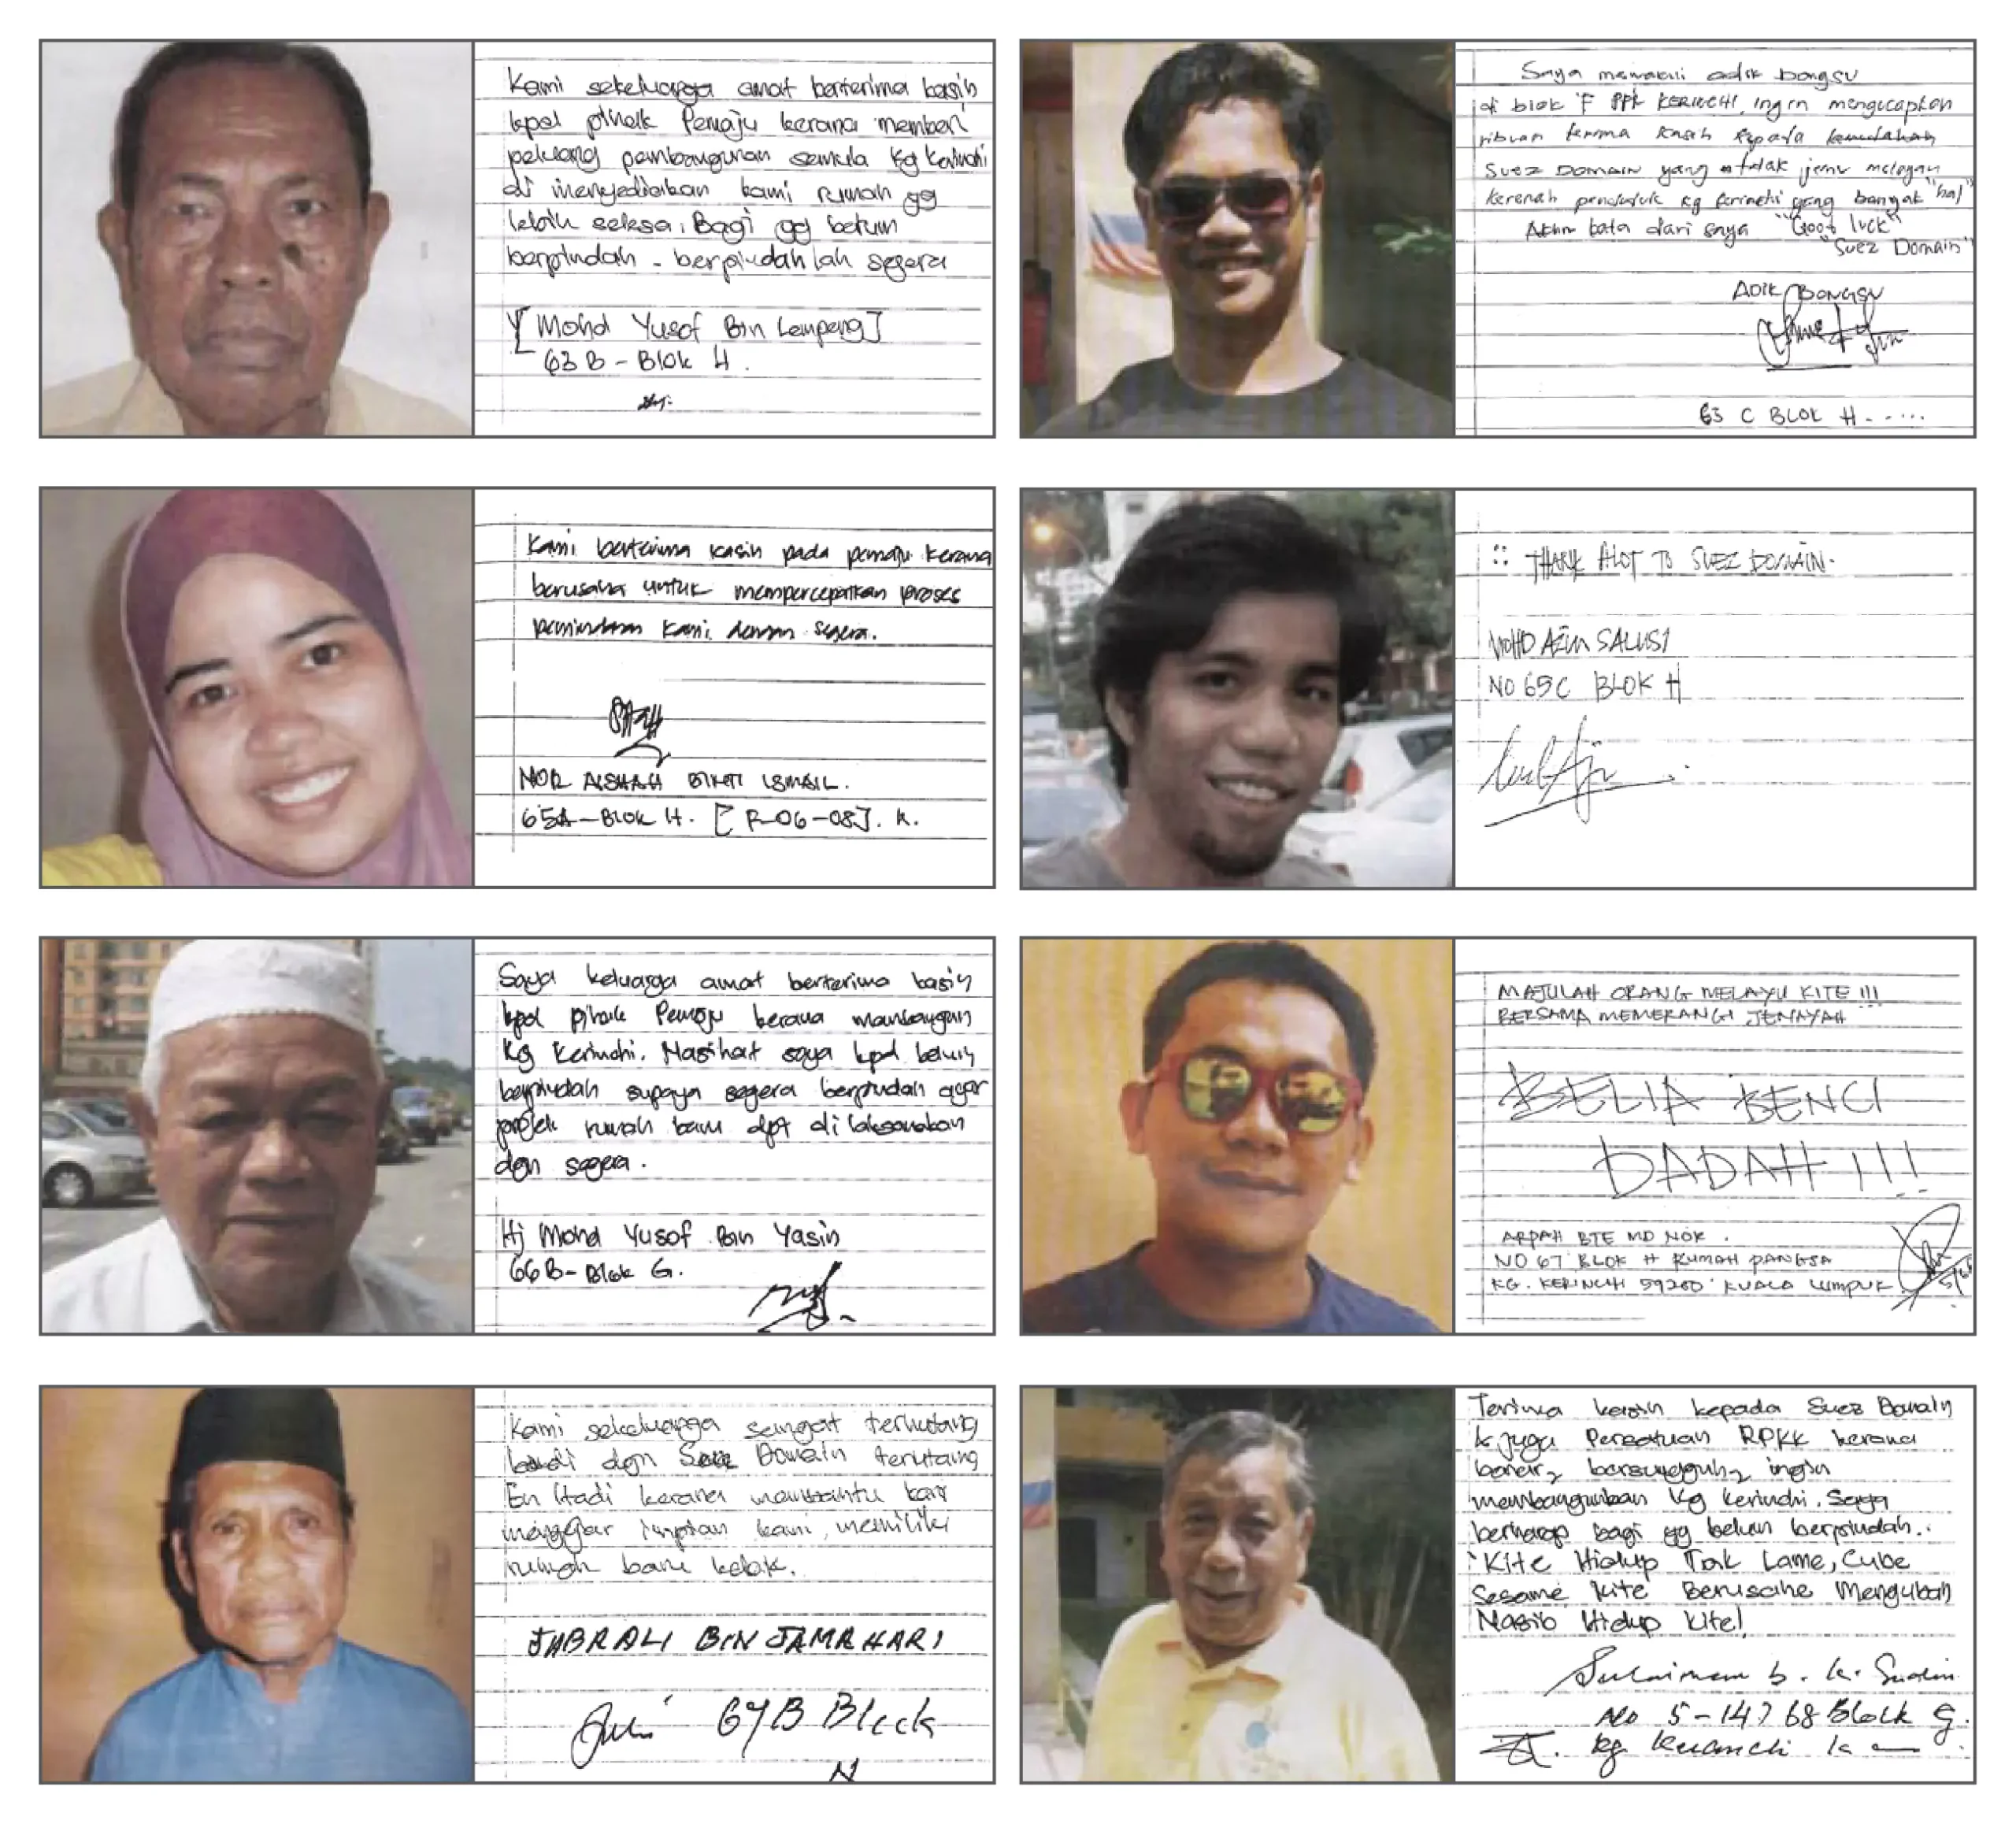 Kami sekeluarga amat berterima kasih
kpd pihak Pemaju kerana memberi
peluang pembangunan semula Kg Kerinchi
di menyediakan kami rumah yg
lebih selesa. Bagi yg belum
berpindah - berpindah lah segera
[Mohd Yusof Bin Lempeng]
63 B - Blok H.
Saya mewakili adik bongsu
di blok 'F PPR KERINCHI, ingin mengucapkan
ribuan terima kasih kepada
SUEZ DOMAIN yang tidak jemu melayan
kerenah penduduk kg kerinchi yang banyak "hal"
Akhir kata dari saya "Goot luck"
"Suez Domain"
ADIK BONGSU
63 C BLOK H - ....
Kami berterima kasih pada pemaju kerana
berusaha untuk mempercepatkan proses
pemindahan kami dengan segera.
NOR AISHAH BINTI ISMAIL.
65A - BLOK H. [R-06-08]. K.
THANK ALOT TO SUEZ DOMAIN.
MOHD AZIM SALUSI
NO 65C BLOK H
Saya keluarga amat berterima kasih
kpd pihak Pemaju kerana membangun
Kg Kerinchi. Nasihat saya kpd belum
berpindah supaya segera berpindah agar
projek rumah baru dpt di laksanakan
dgn segera.
Hj Mohd Yusof Bin Yasin
66 B - Blok G.
MAJULAH ORANG MELAYU KITE !!!
BERSAMA MEMERANGI JENAYAH
BELIA BENCI
DADAH !!!
ARPAH BTE MD NOR.
NO 67 BLOK H RUMAH PANGSA
KG. KERINCHI 59200 KUALA LUMPUR
Kami sekeluarga sangat terhutang
budi dgn Domain terutang
En Hadi kerana membantu kami
mengejar impian kami, memiliki
rumah baru kelak.
JABRALI BIN JAMAHARI
67B Block
H
Terima kasih kepada Suez Domain
& juga Persatuan RPKK kerana
benar2 bersungguh2 ingin
membangunkan Kg Kerinchi. Saya
berharap bagi yg belum berpindah..
'Kite Hidup Tak Lame, Cube
Sesame Kite Berusahe Mengubah
Nasib Hidup Kite!
Sulaiman b. K.
No 5-147 68 Block G.
Kg Kerinchi